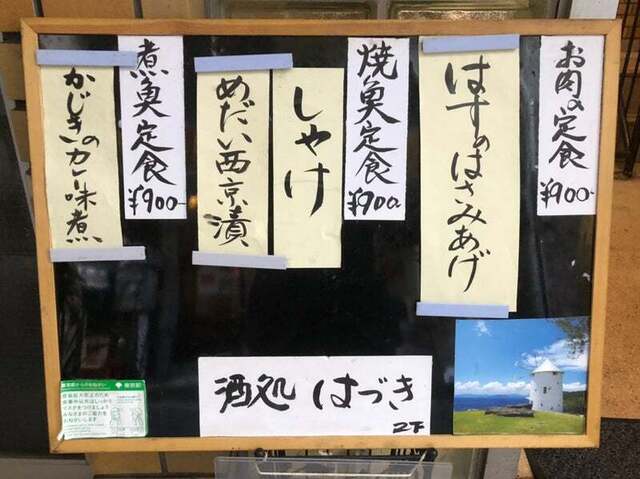 お肉の定食
¥900-
はすのはさみあげ
焼魚定食
¥900-
しゃけ
めだい西京漬
煮魚定食
¥900-
かじきのカレー味煮
酒処 はづき
2F
東京都